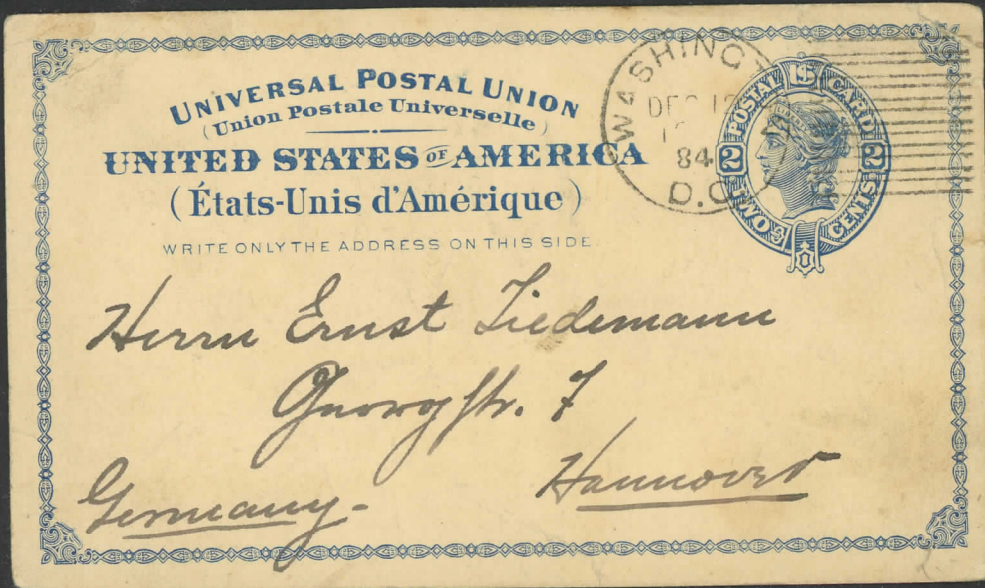 UNIVERSAL POSTAL UNION
(Union Postale Universelle)
UNITED STATES OF AMERICA
(États-Unis d'Amérique)
WRITE ONLY THE ADDRESS ON THIS SIDE.
U.S. POSTAL CARD
2 TWO CENTS 2
WASHINGT
DEC 1
84
D.C.
Herrn Ernst Tiedemann
Georgstr. 7
Hannover
Germany-